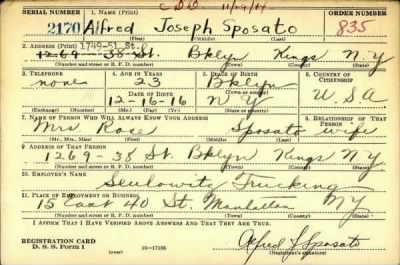 C.D.D. 11/29/44
SERIAL NUMBER 1. NAME (Print) ORDER NUMBER
2170 Alfred Joseph Sposato 835
(First) (Middle) (Last)
2. ADDRESS (Print) 1749-51 St.
1269 - 38 St. Bklyn Kings N Y
(Number and street or R. F. D. number) (Town) (County) (State)
3. TELEPHONE 4. AGE IN YEARS 5. PLACE OF BIRTH 6. COUNTRY OF CITIZENSHIP
none 23 Bklyn
DATE OF BIRTH (Town or county)
12-16-16 N Y U.S.A
(Exchange) (Number) (Mo.) (Day) (Yr.) (State or country)
7. NAME OF PERSON WHO WILL ALWAYS KNOW YOUR ADDRESS 8. RELATIONSHIP OF THAT PERSON
Mrs Rose Sposato wife
(Mr., Mrs., Miss) (First) (Middle) (Last)
9. ADDRESS OF THAT PERSON
1269 - 38 St. Bklyn Kings N Y.
(Number and street or R. F. D. number) (Town) (County) (State)
10. EMPLOYER'S NAME
Trucking
11. PLACE OF EMPLOYMENT OR BUSINESS
15 East 40 St. Manhattan NY
(Number and street or R. F. D. number) (Town) (County) (State)
I AFFIRM THAT I HAVE VERIFIED ABOVE ANSWERS AND THAT THEY ARE TRUE.
REGISTRATION CARD
D. S. S. Form 1 16-17105 Alfred J Sposato
(Registrant's signature)